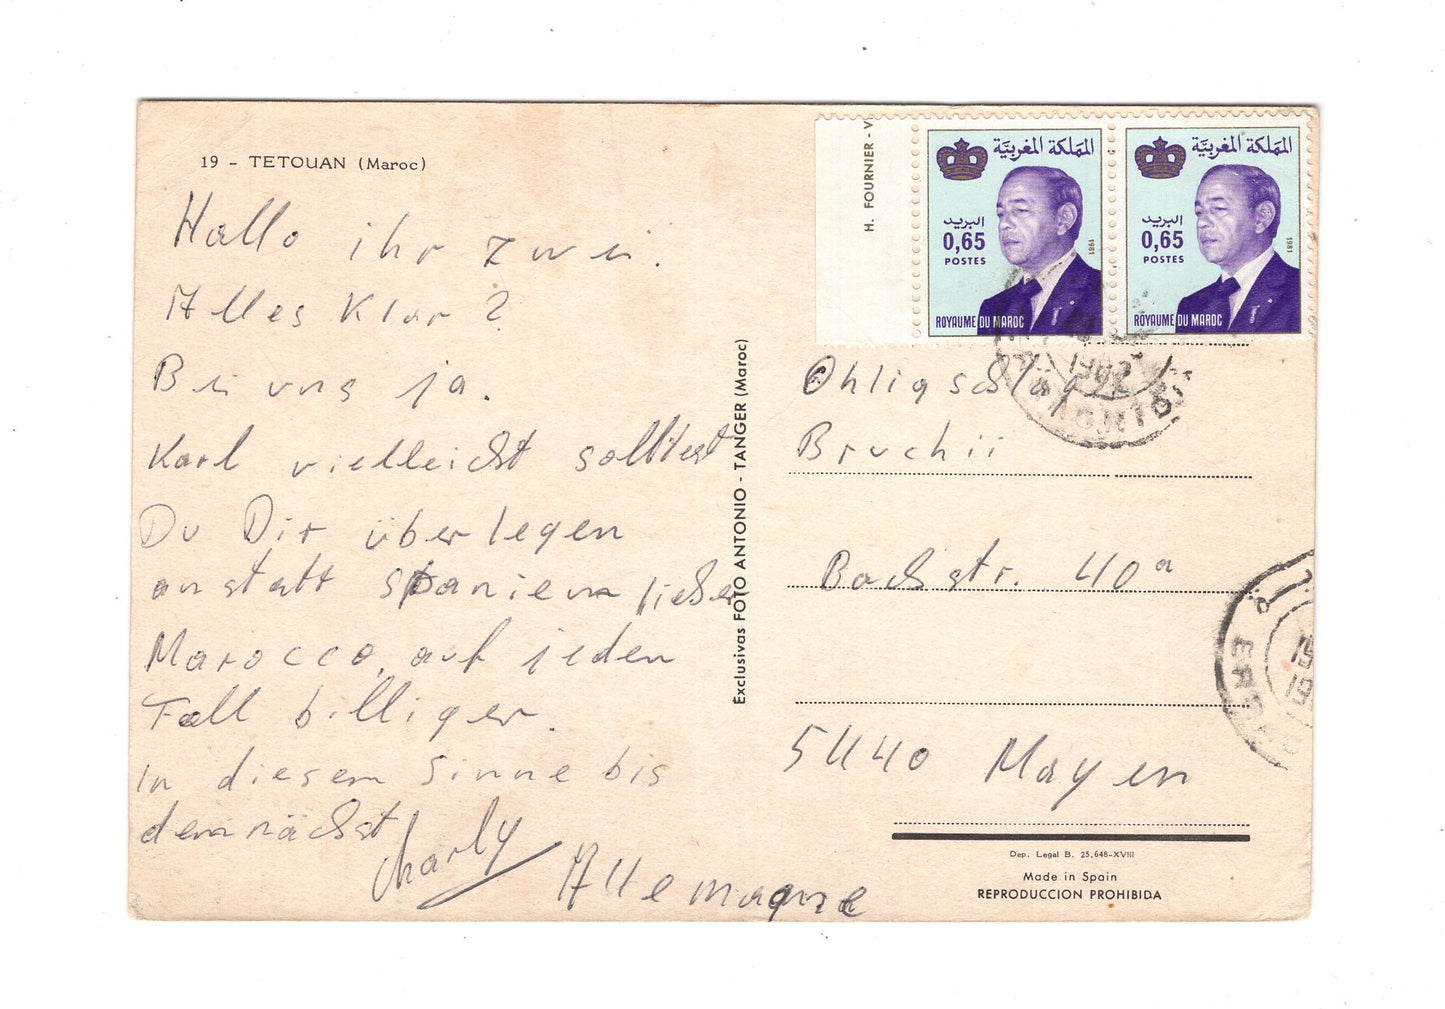 19 - TETOUAN (Maroc)
Hallo ihr zwei.
Alles Klar?
Bei uns ja.
Karl vielleicht solltest
Du Dir überlegen
anstatt Spanien lieber
Marocco, auf jeden
Fall billiger.
In diesem Sinne bis
demnächst
Charly
Exclusivas FOTO ANTONIO - TANGER (Maroc)
H. FOURNIER - V
المملكة المغربية
البريد
0,65
POSTES
1981
ROYAUME DU MAROC
المملكة المغربية
البريد
0,65
POSTES
1981
ROYAUME DU MAROC
Bruchii
Bachstr. 40a
5440 Mayen
Allemagne
Dep. Legal B. 25.648-XVIII
Made in Spain
REPRODUCCION PROHIBIDA